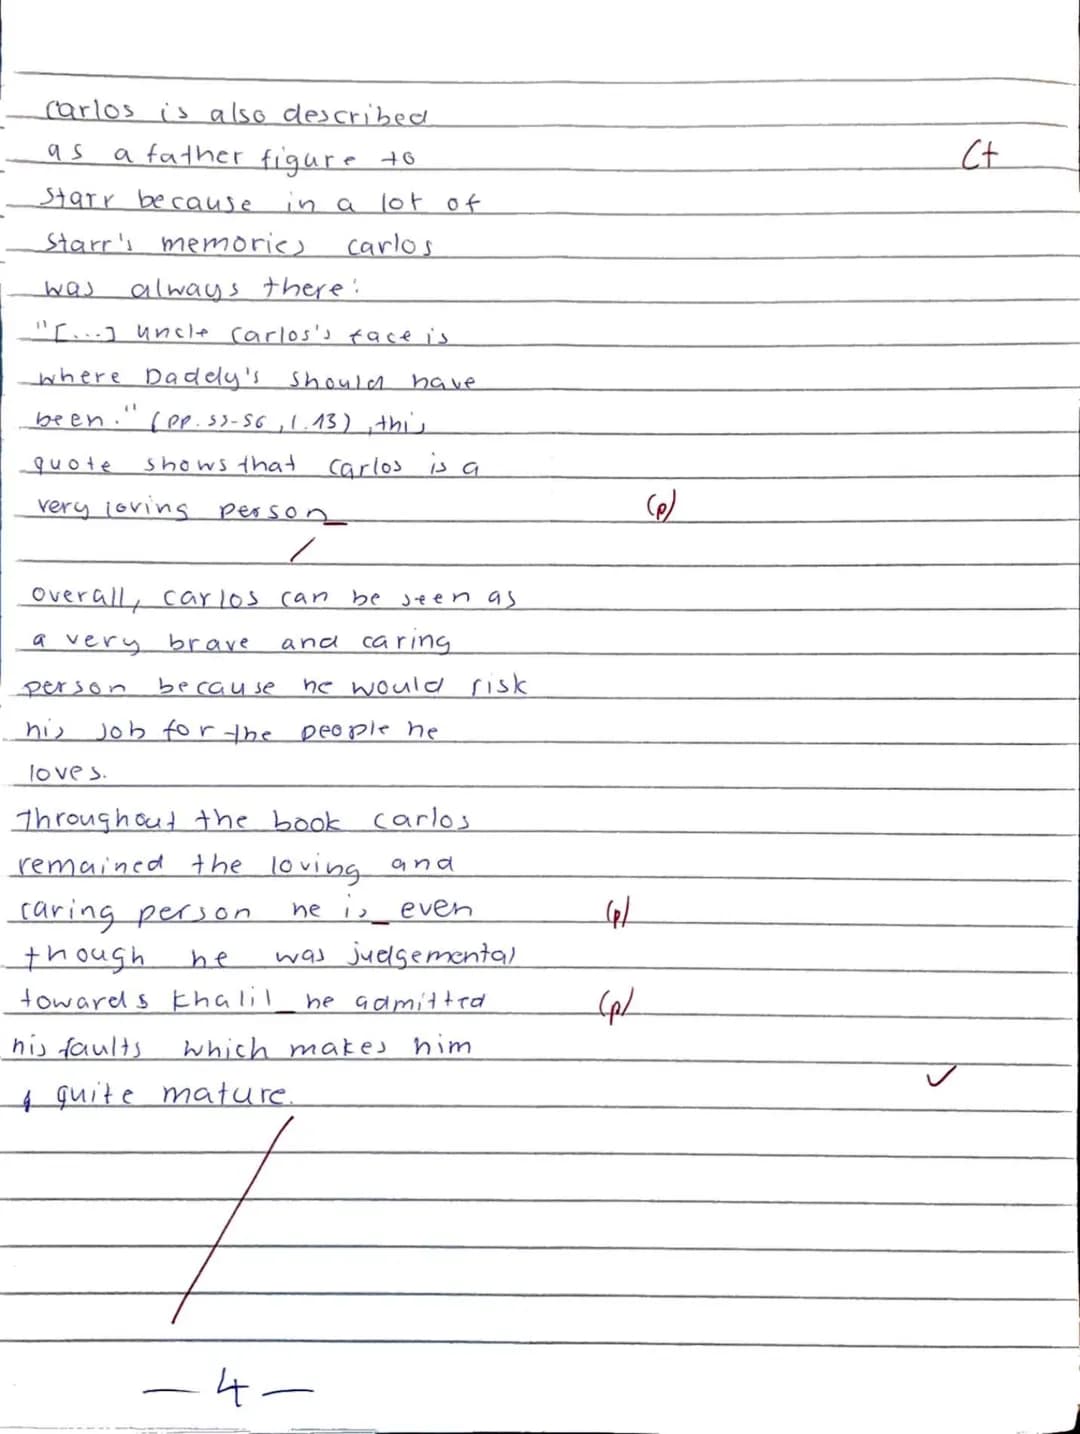 Carlos is also described
as a father figure to
Ct
Starr because in a lot of
Starr's memories Carlos
was always there:
"[...] Uncle Carlos's face is
where Daddy's should have
been." (pp. 55-56, l. 13), this
quote shows that Carlos is a
very loving person
(p)
Overall, Carlos can be seen as
a very brave and caring
person because he would risk
his job for the people he
loves.
Throughout the book Carlos
remained the loving and
caring person he is even
(p)
though he was judgemental
towards Khalil he admitted
(p)
his faults which makes him
quite mature.
✓
- 4 -